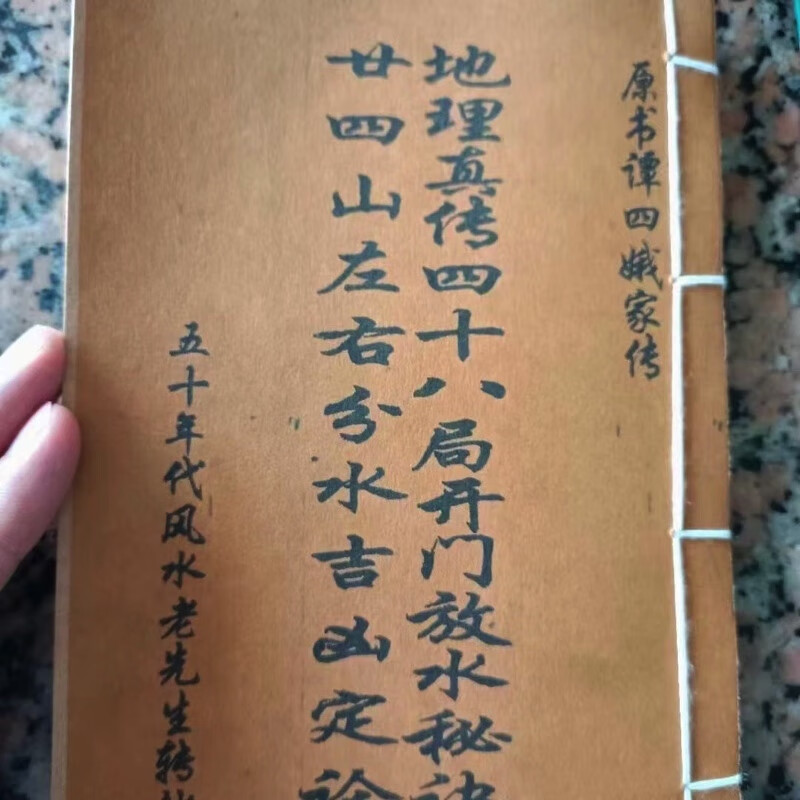 原书谭四娥家传
地理真传四十八局开门放水秘诀
廿四山左右分水吉凶定论
五十年代风水老先生转